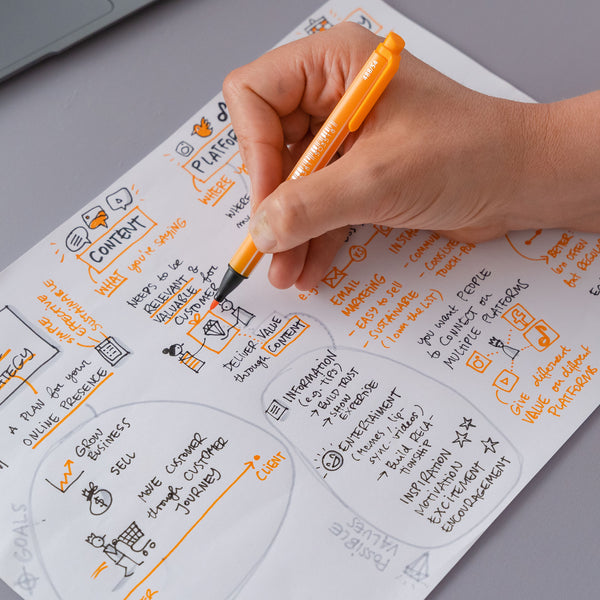 PLATFOR
WHERE
WHERE
CONTENT
WHAT you're SAYING
NEEDS to be
RELEVANT &
VALUABLE for
CUSTOMER
DELIVER VALUE
through CONTENT
EMAIL
MARKETING
- EASY to tell
- SUSTAINABLE
(I own the LIST)
- COMMUN
- CONSISTE
TOUCH-PO
BETTER
but REGULAR
you want PEOPLE
to CONNECT on
MULTIPLE PLATFORMS
GIVE different
VALUE on different
PLATFORMS
SUSTAINABLE
EFFECTIVE
SIMPLE
ATEGY
A PLAN for your
ONLINE PRESENCE
GROW
BUSINESS
SELL
MOVE CUSTOMER
through CUSTOMER
JOURNEY
CLIENT
GOALS
INFORMATION
(e.g. TIPS)
→ BUILD TRUST
→ SHOW
EXPERTISE
ENTERTAIMENT
(memes / lip-
sync videos)
→ Build RELA-
TIONSHIP
INSPIRATION
MOTIVATION
EXCITEMENT
ENCOURAGEMENT
POSSIBLE
VALUES